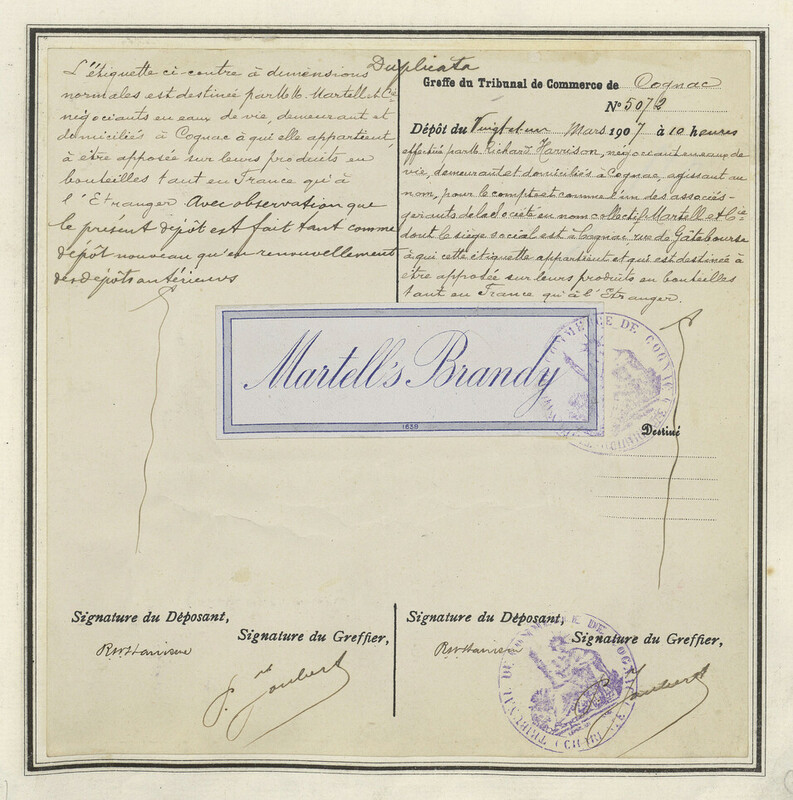 Duplicata
L'étiquette ci-contre à dimensions
normales est destinée par MM. Martell & Cie
négociants en eaux de vie, demeurant et
domiciliés à Cognac à qui elle appartient,
à être apposée sur leurs produits en
bouteilles tant en France qu'à
l'Etranger Avec observation que
le présent dépôt est fait tant comme
dépôt nouveau qu'en renouvellement
des dépôts antérieurs
Greffe du Tribunal de Commerce de Cognac
No 5072
Dépôt du Vingt et un Mars 1907 à 10 heures
effectué par M. Richard Harrison, négociant en eaux de
vie, demeurant et domicilié à Cognac, agissant au
nom, pour le compte et comme l'un des associés-
gérants de la société en nom collectif Martell & Cie
dont le siège social est à Cognac rue de Gâtebourse
à qui cette étiquette appartient et qui est destinée à
être apposée sur leurs produits en bouteilles
tant en France qu'à l'Etranger.
Martell's Brandy
COMMERCE DE COGNAC
Destiné
Signature du Déposant,
Signature du Greffier,
RWHarrison
P. Joubert
Signature du Déposant,
Signature du Greffier,
RWHarrison
Joubert
TRIBUNAL DE COMMERCE DE COGNAC